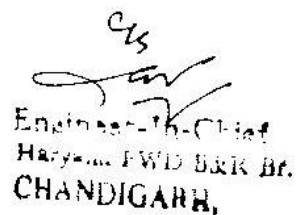 Engineer-in-Chief
Haryana PWD B&R Br.
CHANDIGARH,